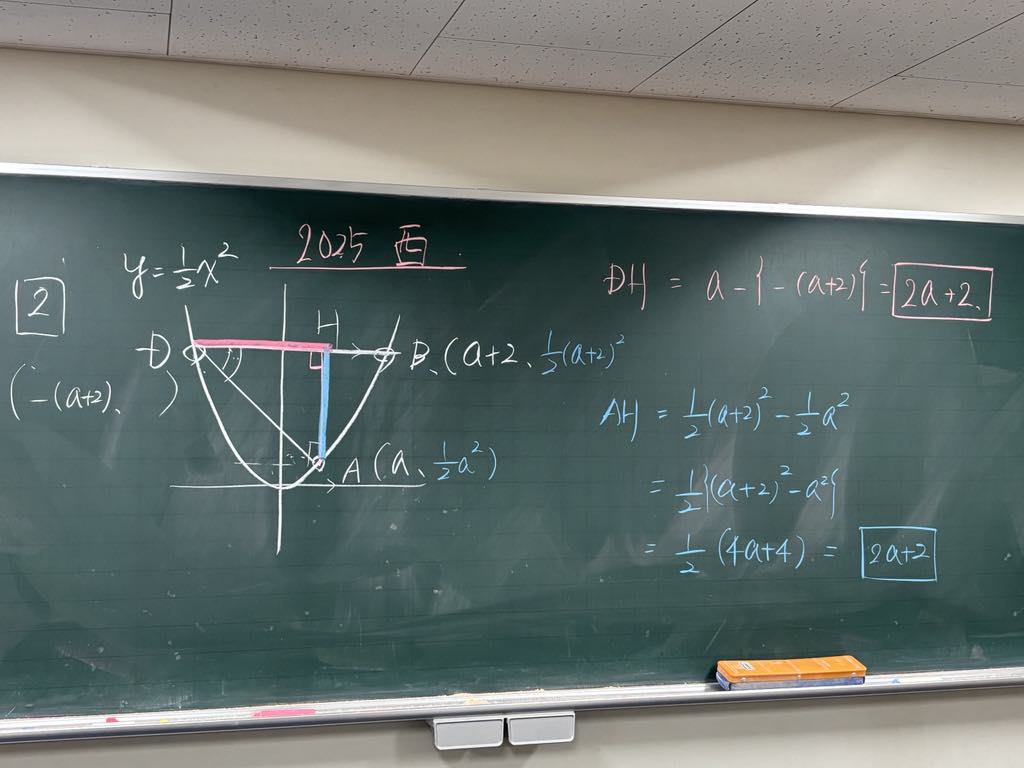 2025 西
y=½x²
2
D
H
B、(a+2、½(a+2)²
(-(a+2)、 )
A(a、½a²)
DH = a-{-(a+2)} = 2a+2、
AH = ½(a+2)²-½a²
= ½{(a+2)²-a²}
= ½(4a+4) = 2a+2